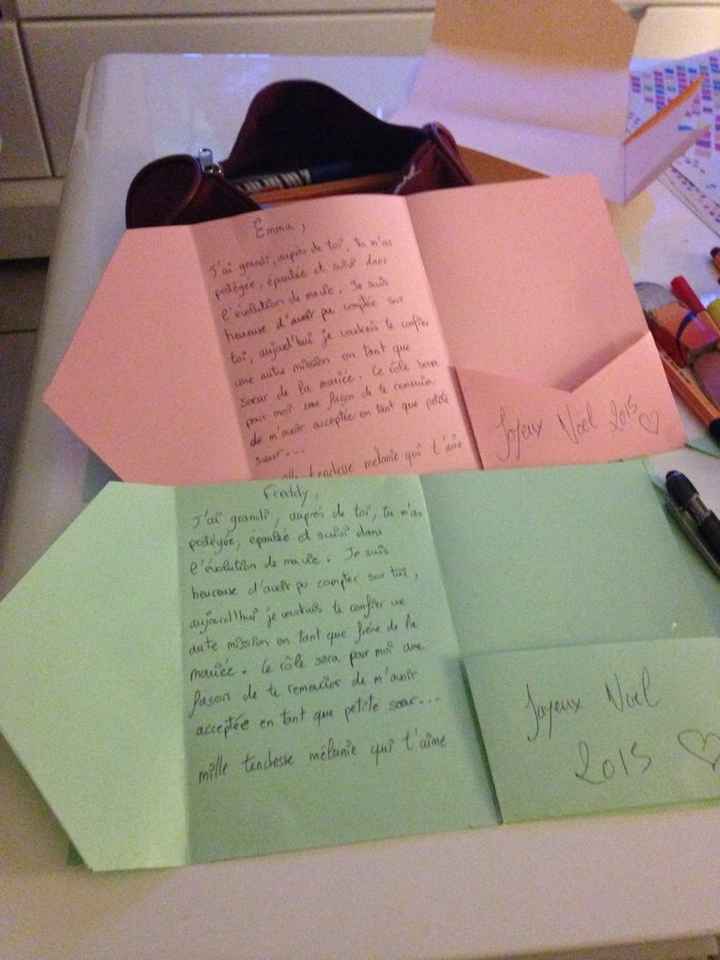 Emma,
J'ai grandi, auprès de toi, tu m'as
protégée, épaulée et suivi dans
l'évolution de ma vie. Je suis
heureuse d'avoir pu compter sur
toi, aujourd'hui je voudrais te confier
une autre mission en tant que
soeur de la mariée. Ce rôle sera
pour moi une façon de te remercier
de m'avoir acceptée en tant que petite
soeur....
mille tendesse mélanie qui t'aime
Joyeux Noël 2015
Freddy,
J'ai grandi, auprès de toi, tu m'as
protégée, épaulée et suivi dans
l'évolution de ma vie. Je suis
heureuse d'avoir pu compter sur toi,
aujourd'hui je voudrais te confier une
autre mission en tant que frère de la
mariée. Ce rôle sera pour moi une
façon de te remercier de m'avoir
acceptée en tant que petite soeur...
mille tendesse mélanie qui t'aime
Joyeux Noël
2015